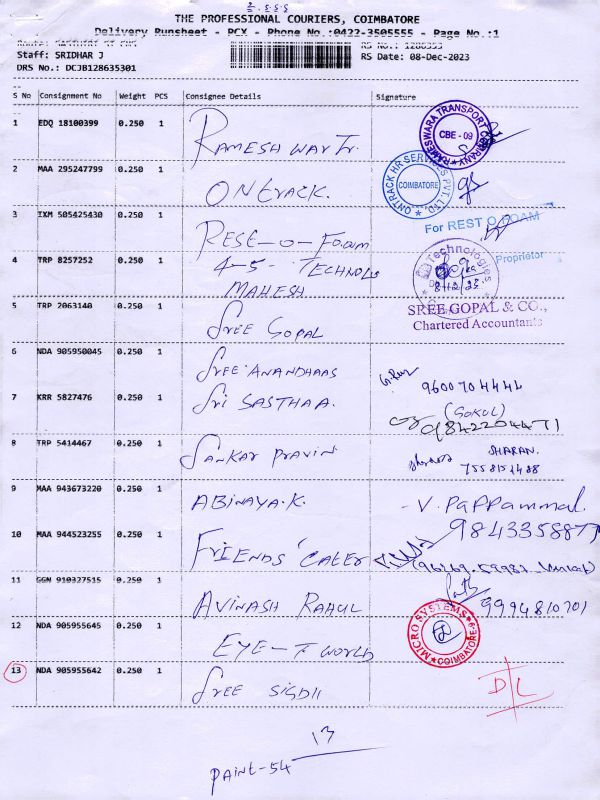 THE PROFESSIONAL COURIERS, COIMBATORE
Delivery Runsheet - PCX - Phone No.:0422-3505555 - Page No.:1
Staff: SRIDHAR J
RS Date: 08-Dec-2023
DRS No.: DCJB128635301
S No Consignment No Weight PCS Consignee Details Signature
1 EDQ 18100399 0.250 1 RAMESH WAR Tr. RAMESWARA TRANSPORT COMPANY CBE - 09
2 MAA 295247799 0.250 1 ONTRACK. ONTRACK HR SERVICES PVT. LTD COIMBATORE
3 IXM 505425430 0.250 1 REST-O-FOAM For REST O FOAM
Proprietor
4 TRP 8257252 0.250 1 4-5- TECHNOLO Technologies
MAHESH
5 TRP 2063140 0.250 1 SREE GOPAL SREE GOPAL & CO.,
Chartered Accountants
6 NDA 905950045 0.250 1 SREE ANANDHAAS 9600704444
7 KRR 5827476 0.250 1 Sri SASTHAA. (GOKUL)
9842204471
8 TRP 5414467 0.250 1 SANKAR PRAVIN SHARAN.
9 MAA 943673220 0.250 1 ABINAYA.K. - V. Pappammal.
9843358877
10 MAA 944523255 0.250 1 FRIENDS CATER
11 GGN 910327515 0.250 1 AVINASH RAHUL 9994810701
12 NDA 905955645 0.250 1 EYE-T WORLD MICRO SYSTEMS COIMBATORE
13 NDA 905955642 0.250 1 SREE D/L
13
PAINT-54